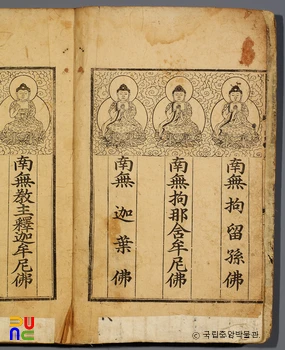 南無拘留孫佛
南無拘那含牟尼佛
南無迦葉佛
南無敎主釋迦牟尼佛
국립중앙박물관